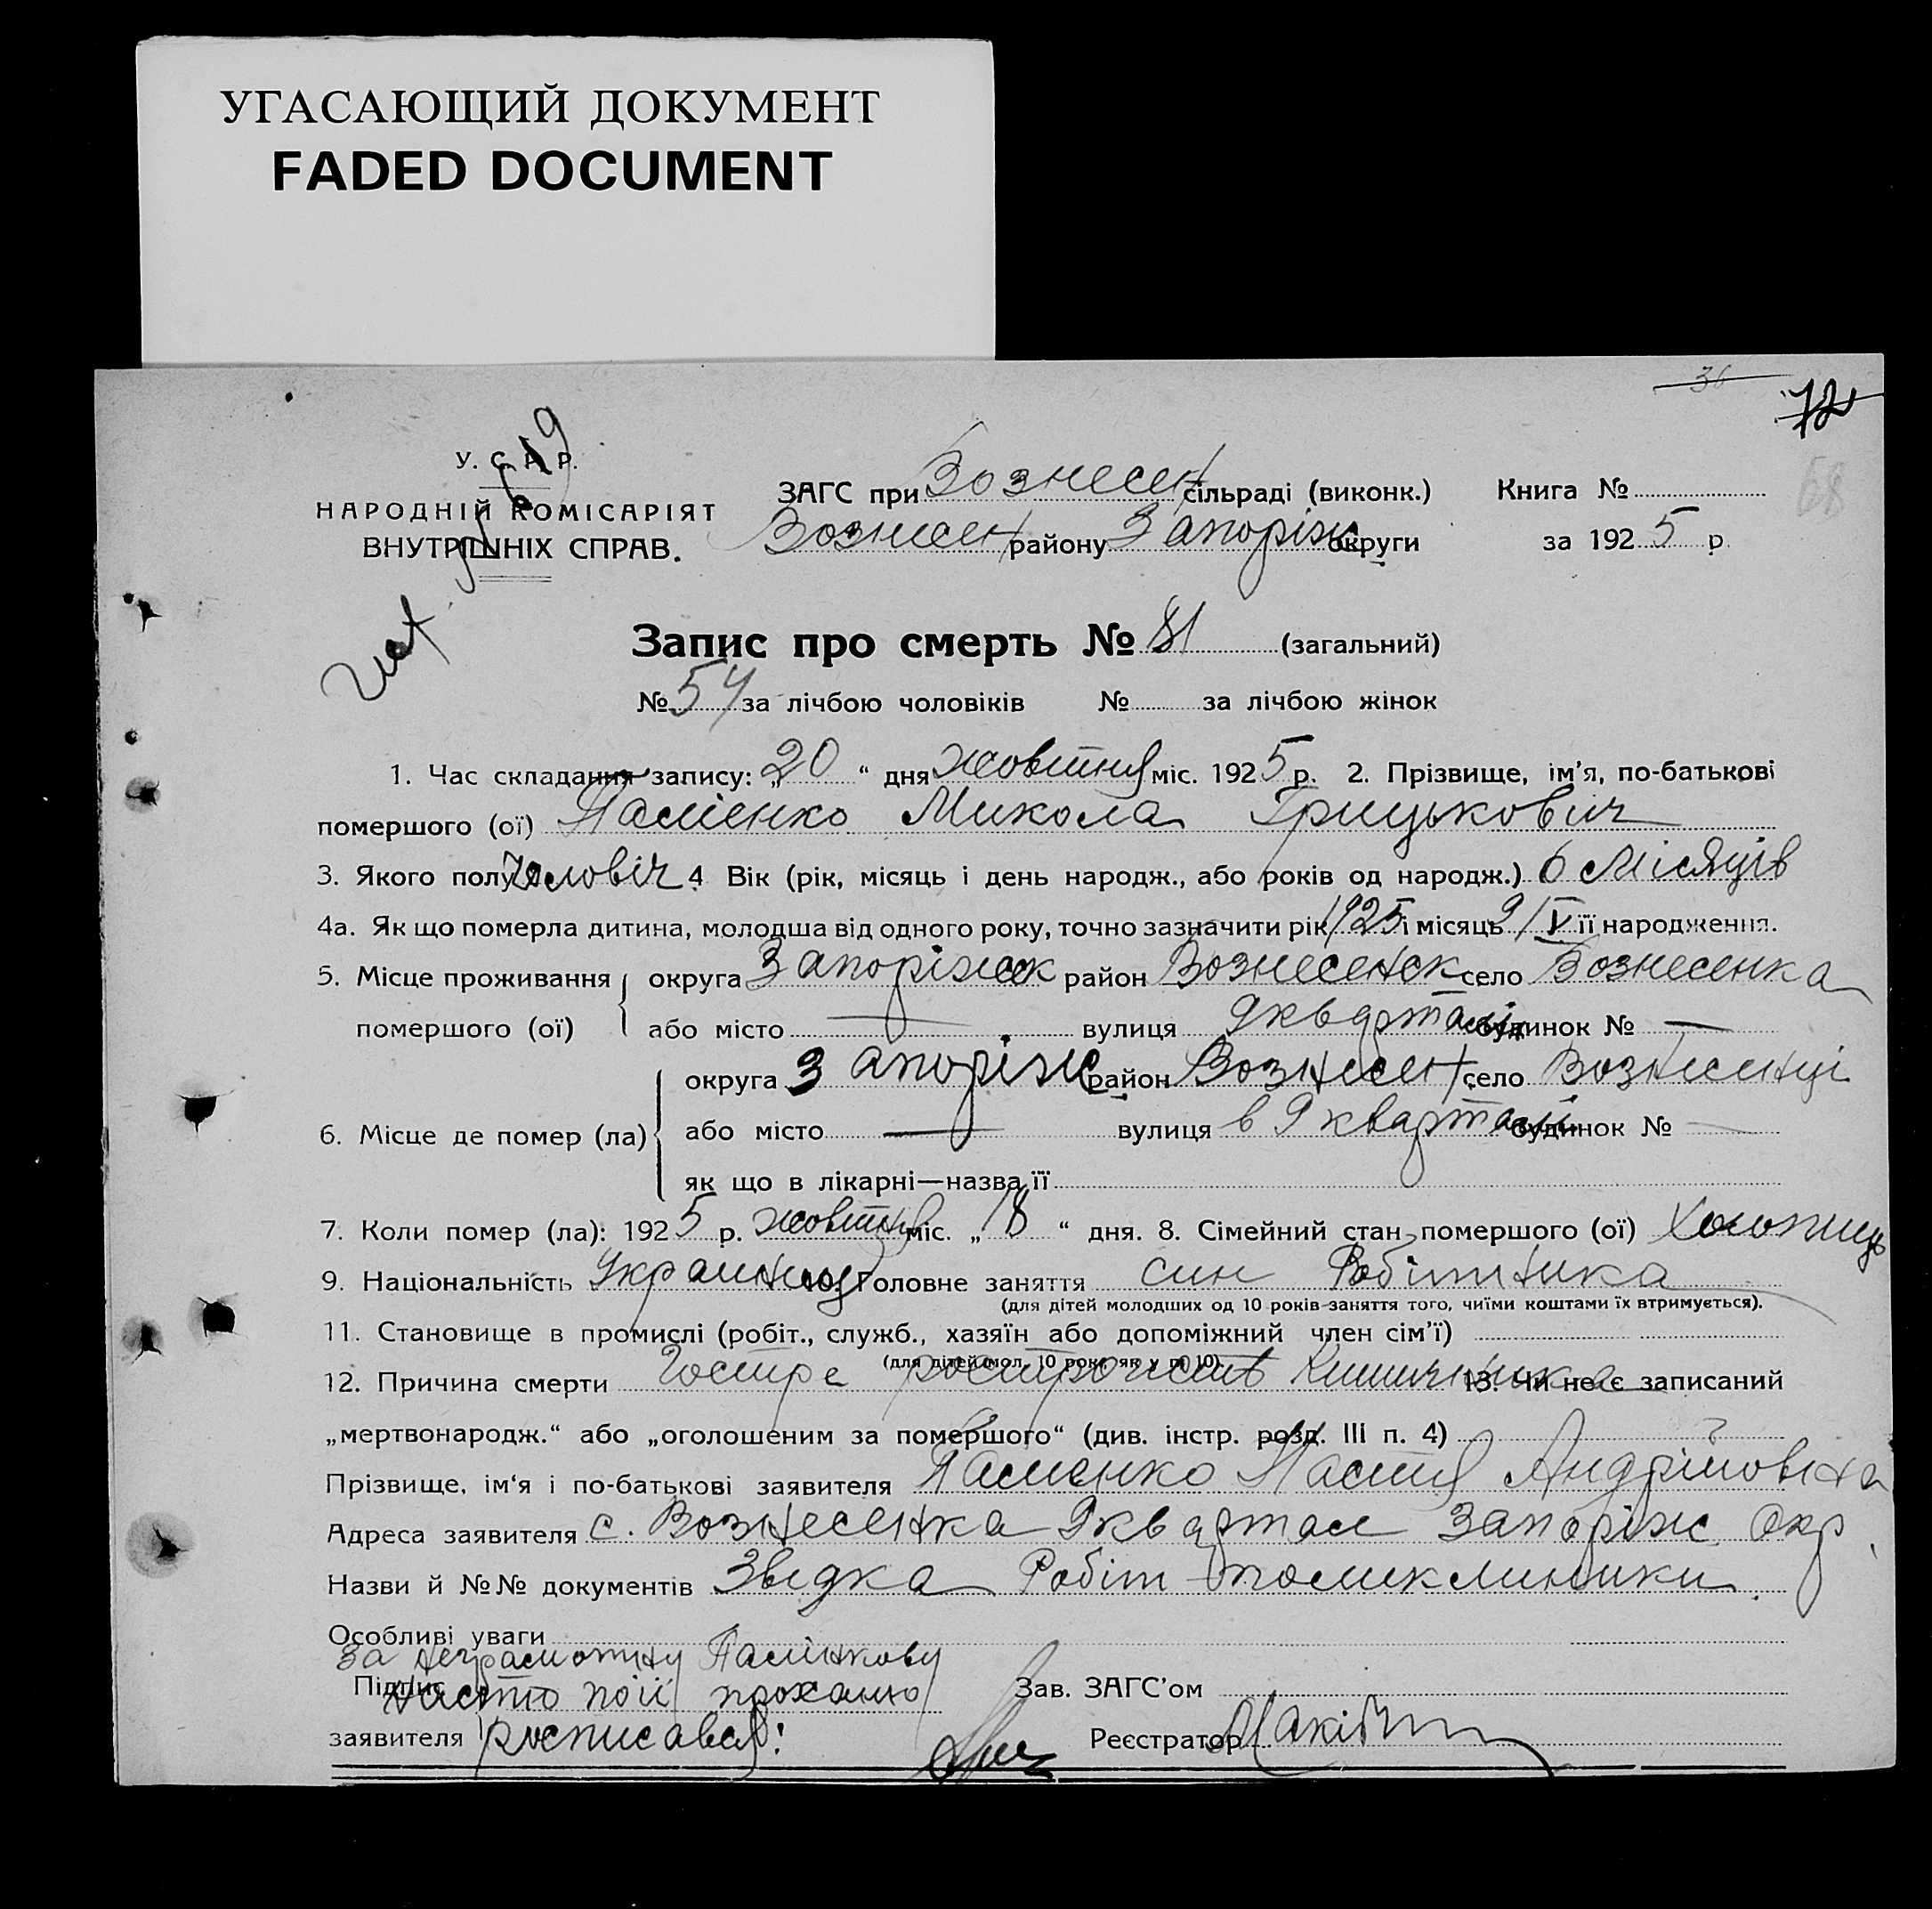 УГАСАЮЩИЙ ДОКУМЕНТ
FADED DOCUMENT
36
72
68
У. С. Р. Р.
НАРОДНІЙ КОМІСАРІЯТ
ВНУТРІШНІХ СПРАВ.
ЗАГС при Вознесен сільраді (виконк.) Книга №
Вознесен району Запоріж округи за 1925 р.
Запис про смерть № 81 (загальний)
№ 54 за лічбою чоловіків № за лічбою жінок
1. Час складання запису: „20“ дня жовтня міс. 1925 р. 2. Прізвище, ім’я, по-батькові
помершого (ої) Паліенко Микола Грицькович
3. Якого полу Чоловіч 4 Вік (рік, місяць і день народж., або років од народж.) 6 Місяців
4а. Як що померла дитина, молодша від одного року, точно зазначити рік 1925 і місяць 9/V її народження.
5. Місце проживання округа Запоріжск район Вознесенск село Вознесенка
помершого (ої) або місто — вулиця 9 квартал будинок № —
округа Запоріж район Вознесен село Вознесенці
6. Місце де помер (ла) або місто — вулиця в 9 кварталі будинок № —
як що в лікарні—назва її
7. Коли помер (ла): 1925 р. жовтня міс. „18“ дня. 8. Сімейний стан помершого (ої) Холопець
9. Національність Українец 10. Головне заняття син Робітника
(для дітей молодших од 10 років-заняття того, чиїми коштами їх втримується).
11. Становище в промислі (робіт., служб., хазяїн або допоміжний член сім’ї)
(для дітей мол. 10 рок. як у п. 10).
12. Причина смерти Гостре Кишичника 13. Чи не є записаний
„мертвонародж.“ або „оголошеним за помершого“ (див. інстр. розд. III п. 4)
Прізвище, ім‘я і по-батькові заявителя Палиенко Настя Андрійовіна
Адреса заявителя с. Вознесенка 9 квартал Запоріж Окр
Назви й №№ документів Звідка Робіт поликлиники
Особливі уваги
За неграмотну Палінкову
Підпис настю по її проханю
Зав. ЗАГС’ом
заявителя росписався!
Реєстратор